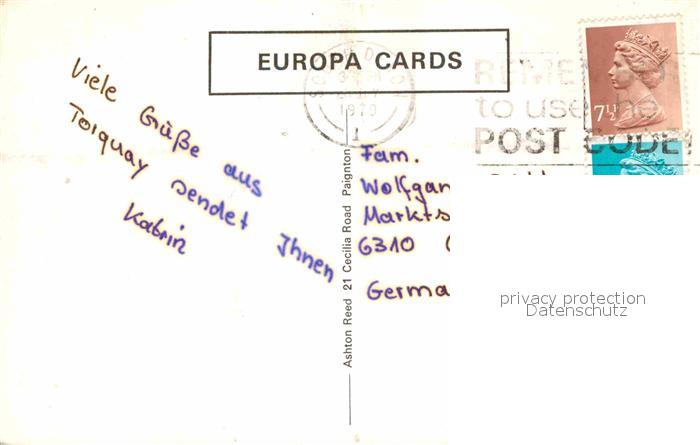 EUROPA CARDS
1979
7½
REMEMBER
to use the
POST CODE
Viele Grüße aus
Torquay sendet Ihnen
Katrin
Ashton Reed 21 Cecilia Road Paignton
Fam.
Wolfgan
Markts
6310
Germa
privacy protection
Datenschutz